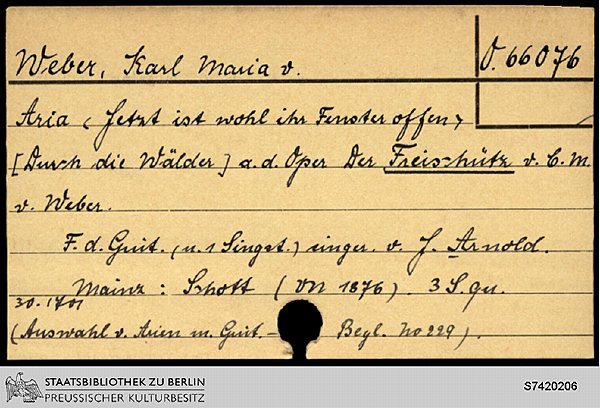 Weber, Karl Maria v.
O. 66076
Aria < Jetzt ist wohl ihr Fenster offen >
[Durch die Wälder] a. d. Oper Der Freischütz v. C. M.
v. Weber.
F. d. Guit. (u. 1 Singst.) einger. v. J. Arnold.
Mainz : Schott (VN 1876). 3 S. qu.
30.1701
(Auswahl v. Arien m. Guit.- Begl. No 229).
STAATSBIBLIOTHEK ZU BERLIN
PREUSSISCHER KULTURBESITZ
S7420206